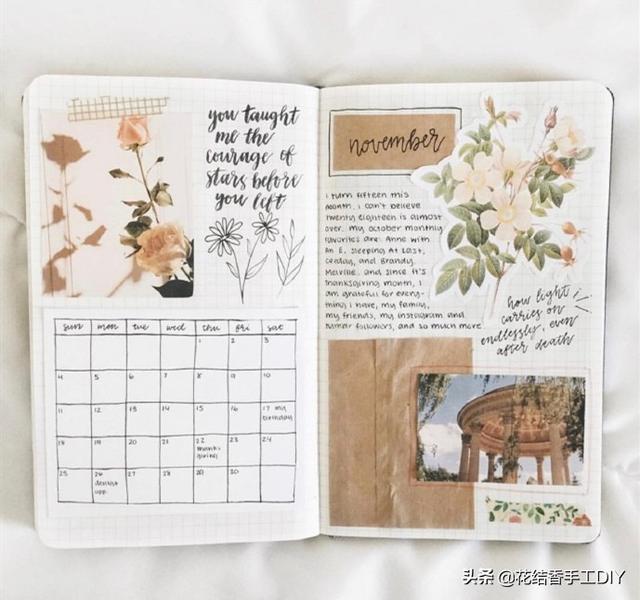 you taught
me the
courage of
stars before
you left
sun mon tue wed thu fri sat
1 2 3
4 5 6 7 8 9 10
11 12 13 14 15 16 17 my
birthday
18 19 20 21 22 23 24
thanks
giving
25 26 27 28 29 30
dentist
app.
november
i turn fifteen this
month. i can't believe
twenty eighteen is almost
over. my october monthly
favorites are: Anne with
an E, Sleeping At Last,
and Brandy
Melville. and since it's
thanksgiving month, i
am grateful for every-
thing i have, my family,
my friends, my instagram and
tumblr followers, and so much more
how light
carries on
endlessly, even
after death
头条 @花结香手工DIY